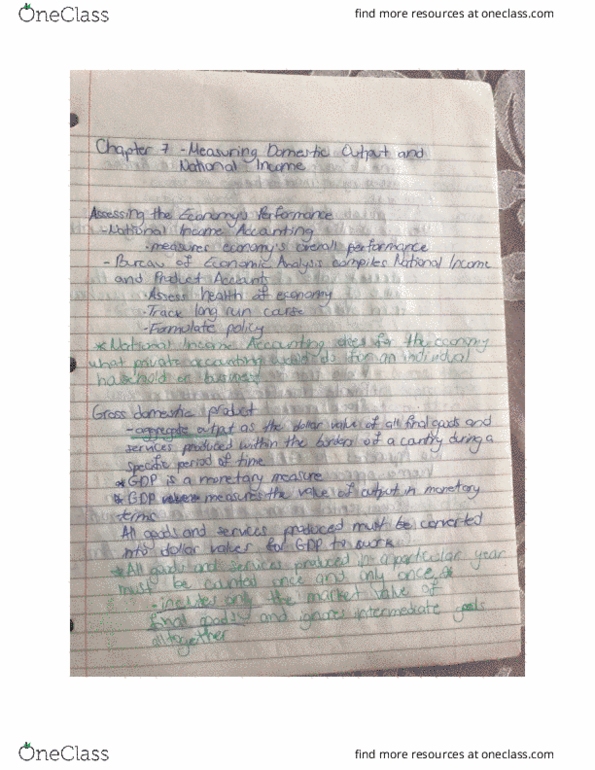 OneClass
find more resources at oneclass.com
Chapter 7 - Measuring Domestic Output and
National Income
Assessing the Economy's Performance
- National Income Accounting
· measures economy's overall performance
- Bureau of Economic Analysis compiles National Income
and Product Accounts
· Assess health of economy
· Track long run
· Formulate policy
* National Income Accounting does for the economy
what private accounting does for an individual
household or business
Gross domestic product
- aggregate output as the dollar value of all final goods and
services produced within the borders of a country during a
specific period of time
* GDP is a monetary measure
* GDP measures the value of output in monetary
terms
All goods and services produced must be converted
into dollar values for GDP to work
* All goods and services produced in a particular year
must be counted once and only once *
- includes only the market value of
final goods and ignores intermediate goods
alltogether
OneClass
find more resources at oneclass.com